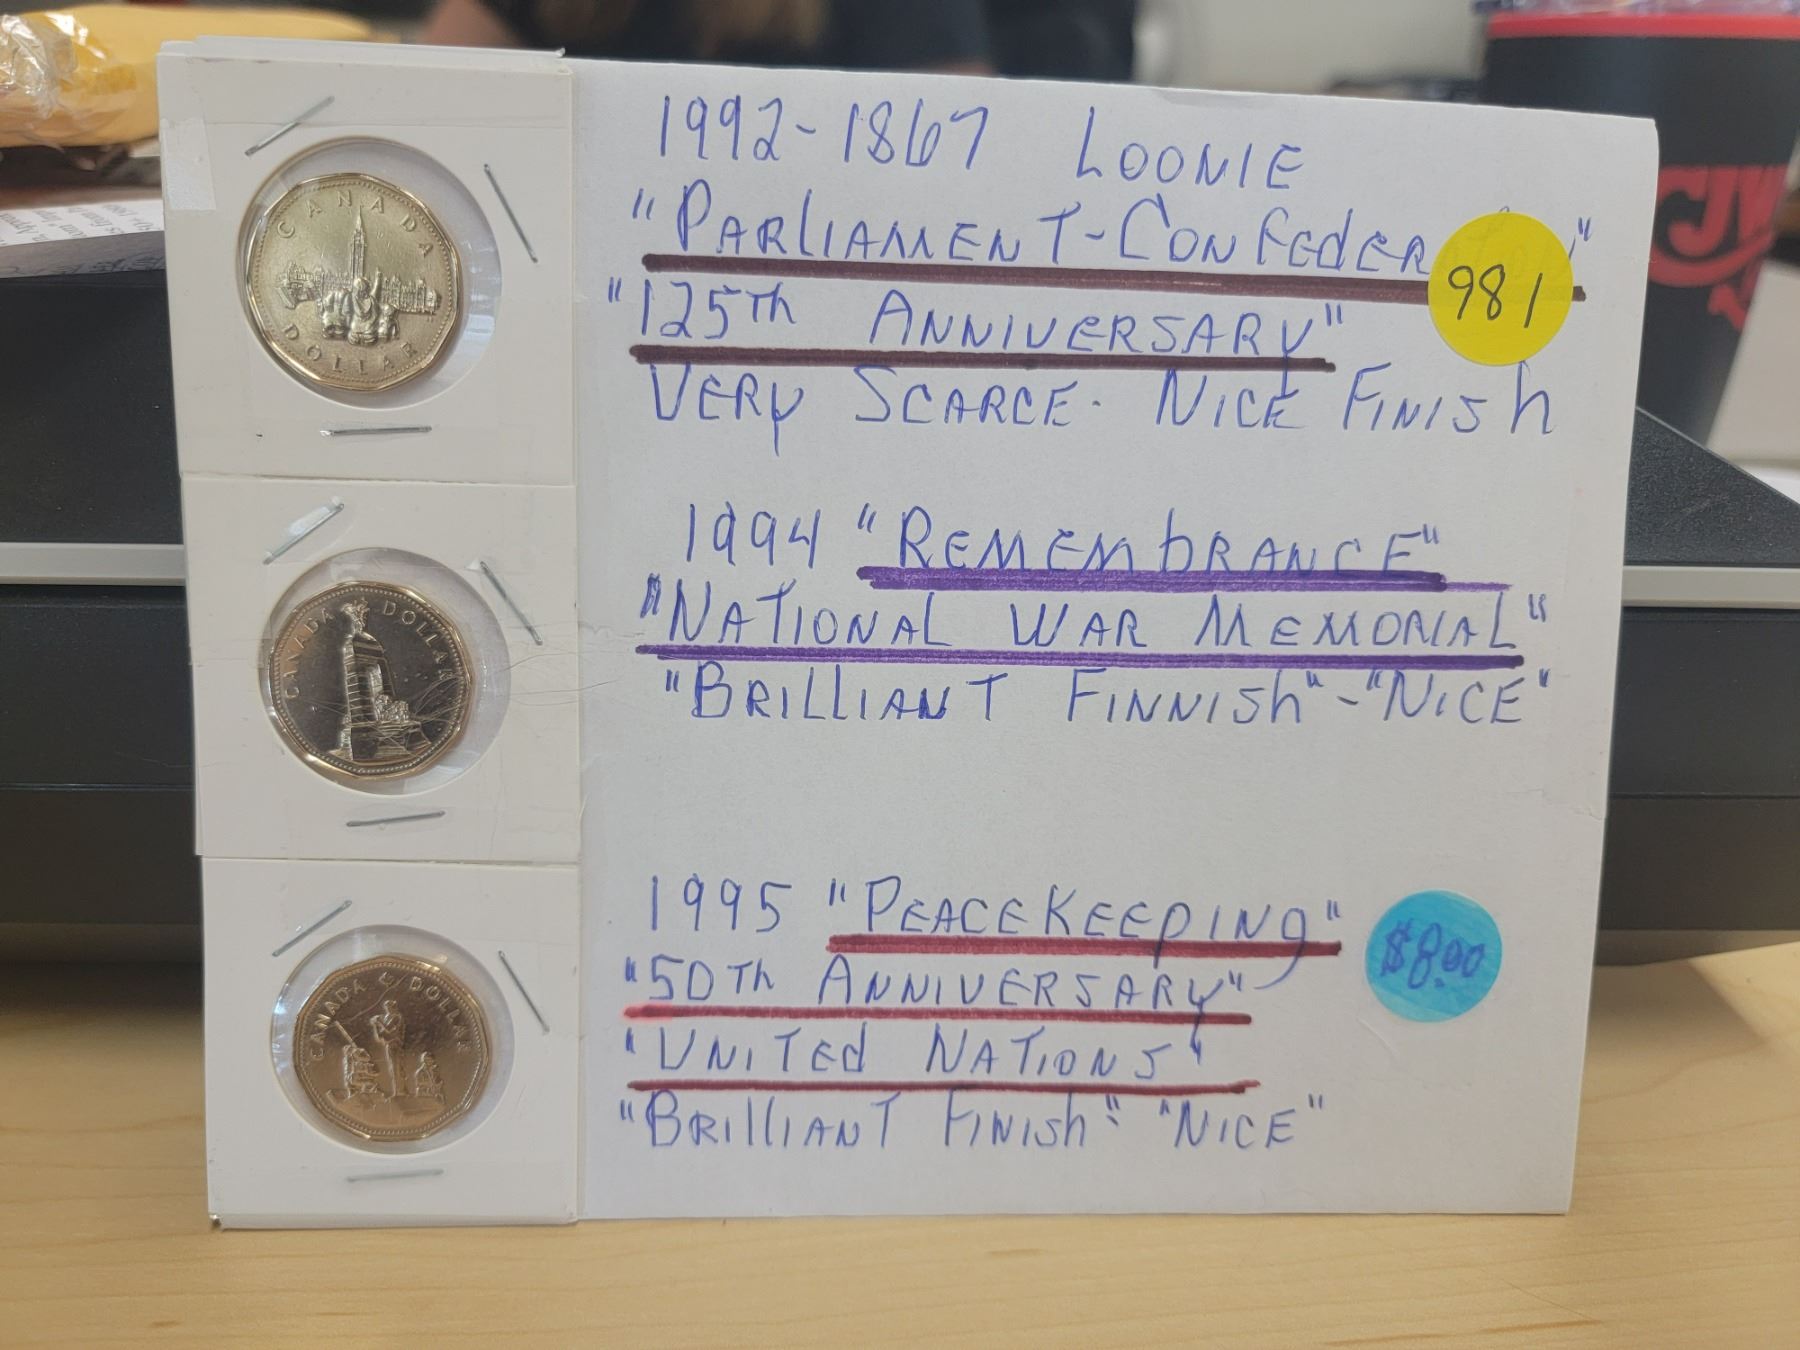 1992-1867 LOONIE
"PARLIAMENT-CONFEDER
981
"125Th ANNIVERSARY"
VERY SCARCE. NICE FINISh
1994 "REMEMbRANCE"
"NATIONAL WAR MEMORIAL"
"BRILLIANT FINNISh"-"NICE"
1995 "PEACEKEEpING"
"50Th ANNIVERSARY"
"UNITEd NATIONS"
"BRIllIANT FINISh" "NICE"
$8.00
CANADA
DOLLAR
CANADA DOLLAR
CANADA DOLLAR